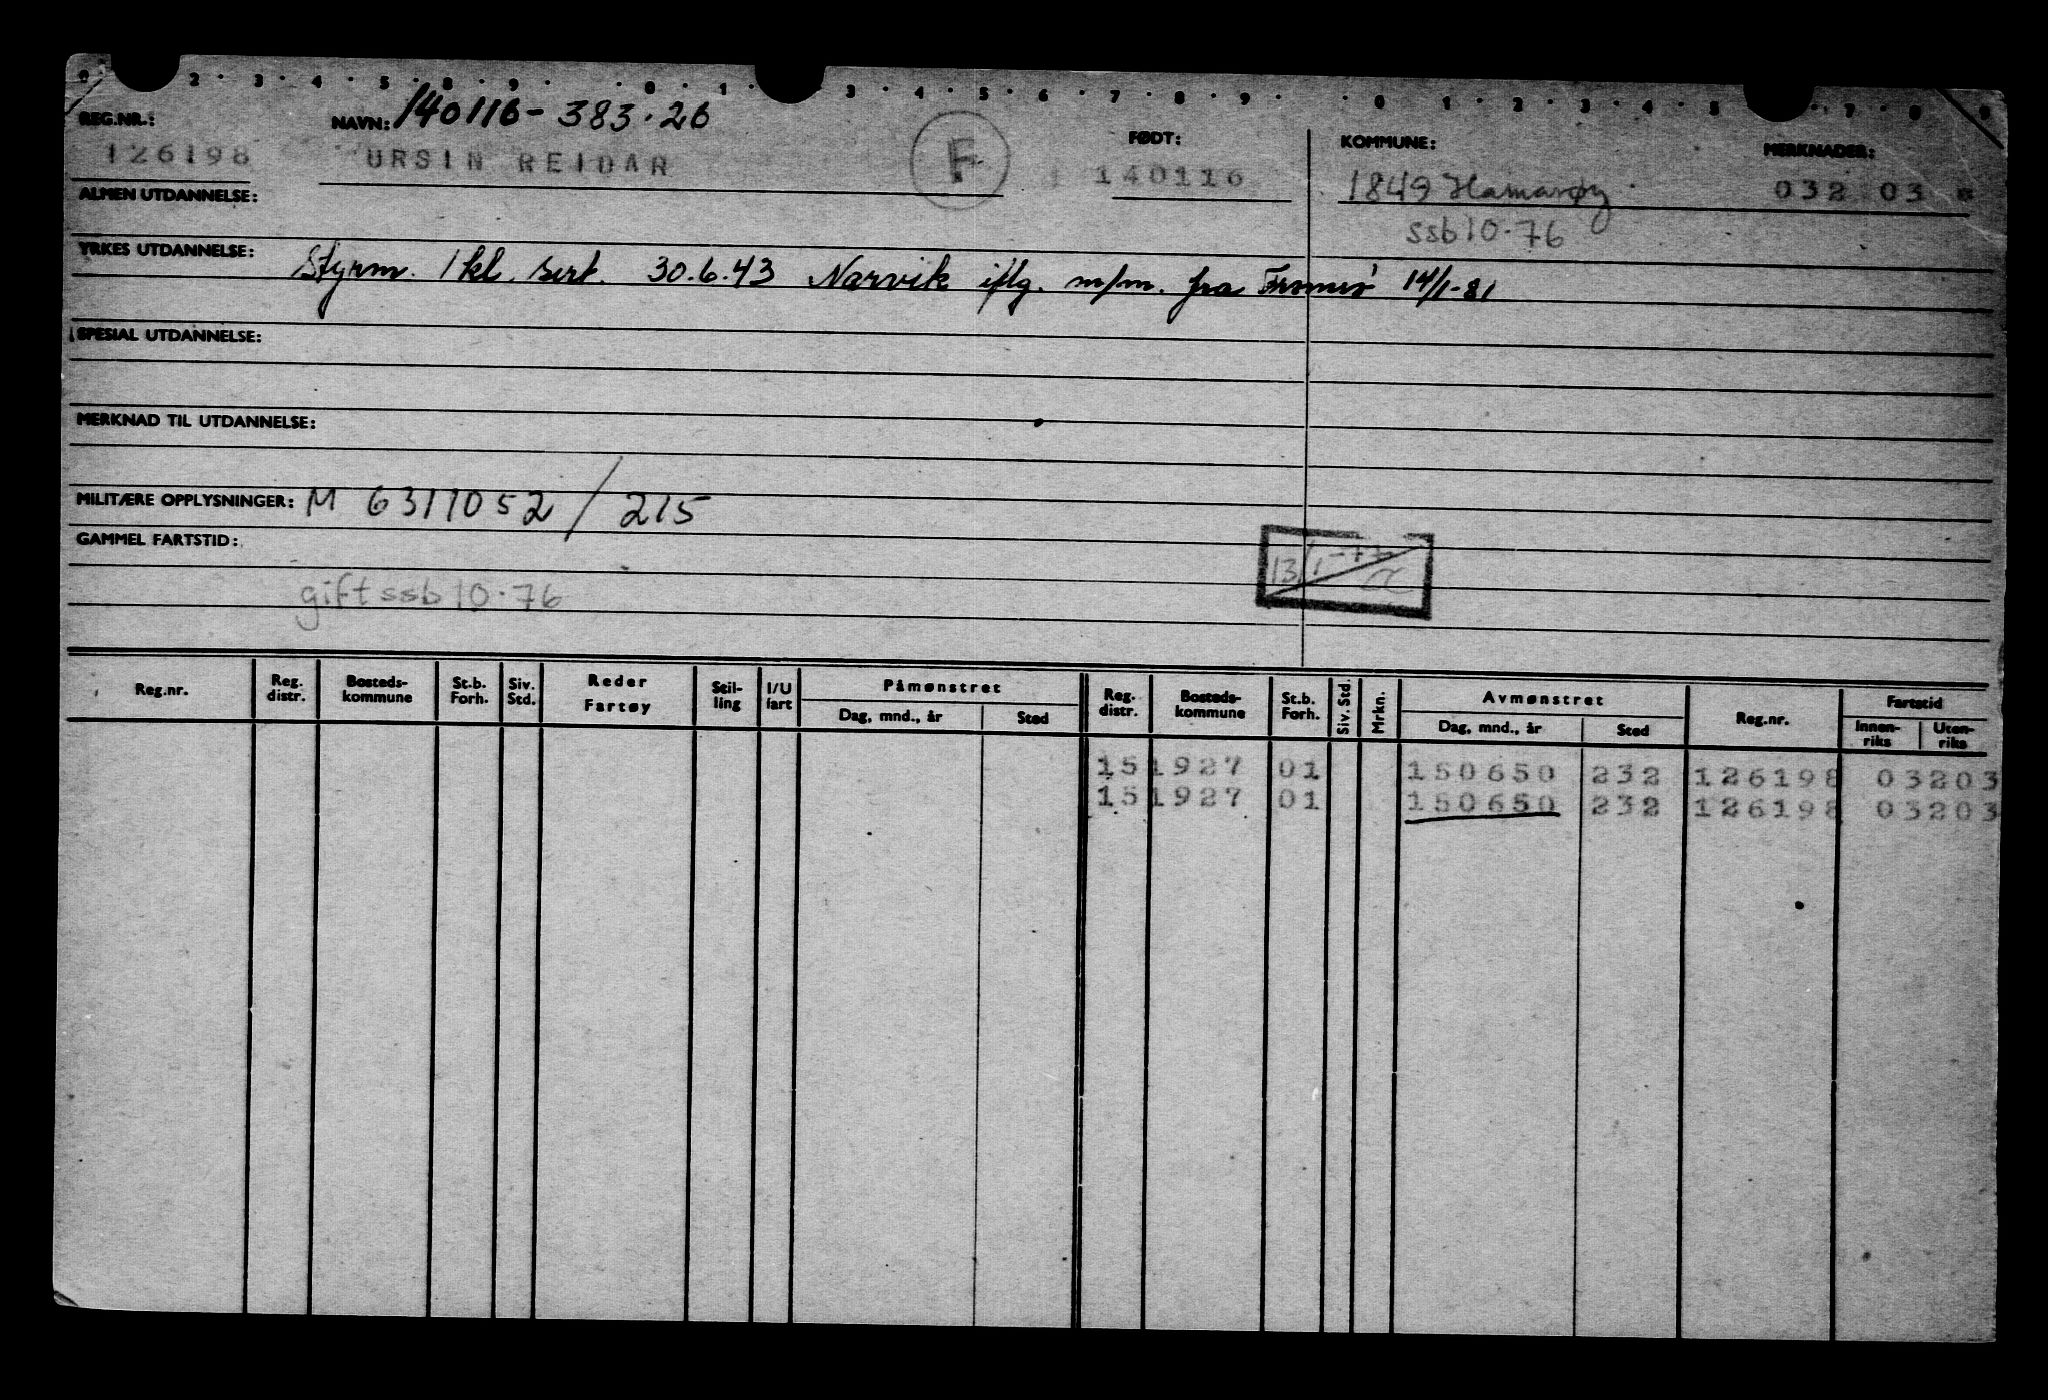 0 2 · 3 · 4 · 5 · 8 · 9 · 0 · 1 · 3 · 4 · 5 · 6 · 7 · 8 · 9 · 0 1 · 2 · 3 · 4 · 5 7 · 8 9
REG.NR.: NAVN: 140116-383.26 FØDT: KOMMUNE: MERKNADER:
126198 URSIN REIDAR F 140116 1849 Hamarøy 032 03
ALMEN UTDANNELSE:
ssb 10.76
YRKES UTDANNELSE: Styrm. 1 kl. sert. 30.6.43 Narvik iflg. m/m. fra 14/1-81
SPESIAL UTDANNELSE:
MERKNAD TIL UTDANNELSE:
MILITÆRE OPPLYSNINGER: M 6311052/215
GAMMEL FARTSTID:
13/1-77
gift ssb 10.76
Reg.nr. Reg. distr. Bosteds-kommune St.b. Forh. Siv. Std. Reder Fartøy Stil-ling I/U fart Påmønstret Dag, mnd., år Sted Reg. distr. Bosteds-kommune St.b. Forh. Siv. Std. Mrkn. Avmønstret Dag, mnd., år Sted Reg.nr. Fartstid Innen-riks Uten-riks
15 1927 01 150650 232 126198 03203
15 1927 01 150650 232 126198 03203